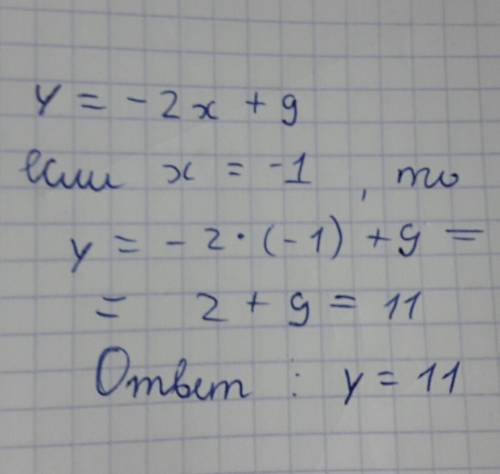 y = -2x + 9
если x = -1, то
y = -2·(-1) + 9 =
= 2 + 9 = 11
Ответ: y = 11